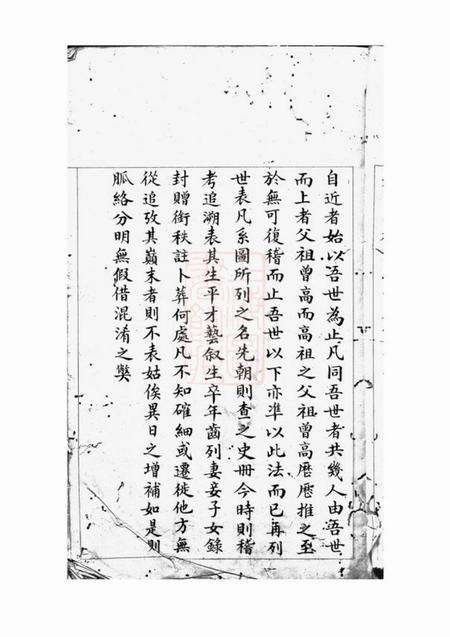 自近者始以吾世為止凡同吾世者共幾人由吾世
而上者父祖曾高而高祖之父祖曾高歷歷推之至
於無可復稽而止吾世以下亦準以此法而已再列
世表凡系圖所列之名先朝則查之史冊今時則稽
考追溯表其生平才藝叙生卒年齒列妻妾子女錄
封贈銜秩註卜葬何處凡不知確細或遷徙他方無
從追攷其巔末者則不表姑俟異日之增補如是則
脈絡分明無假借混淆之獘